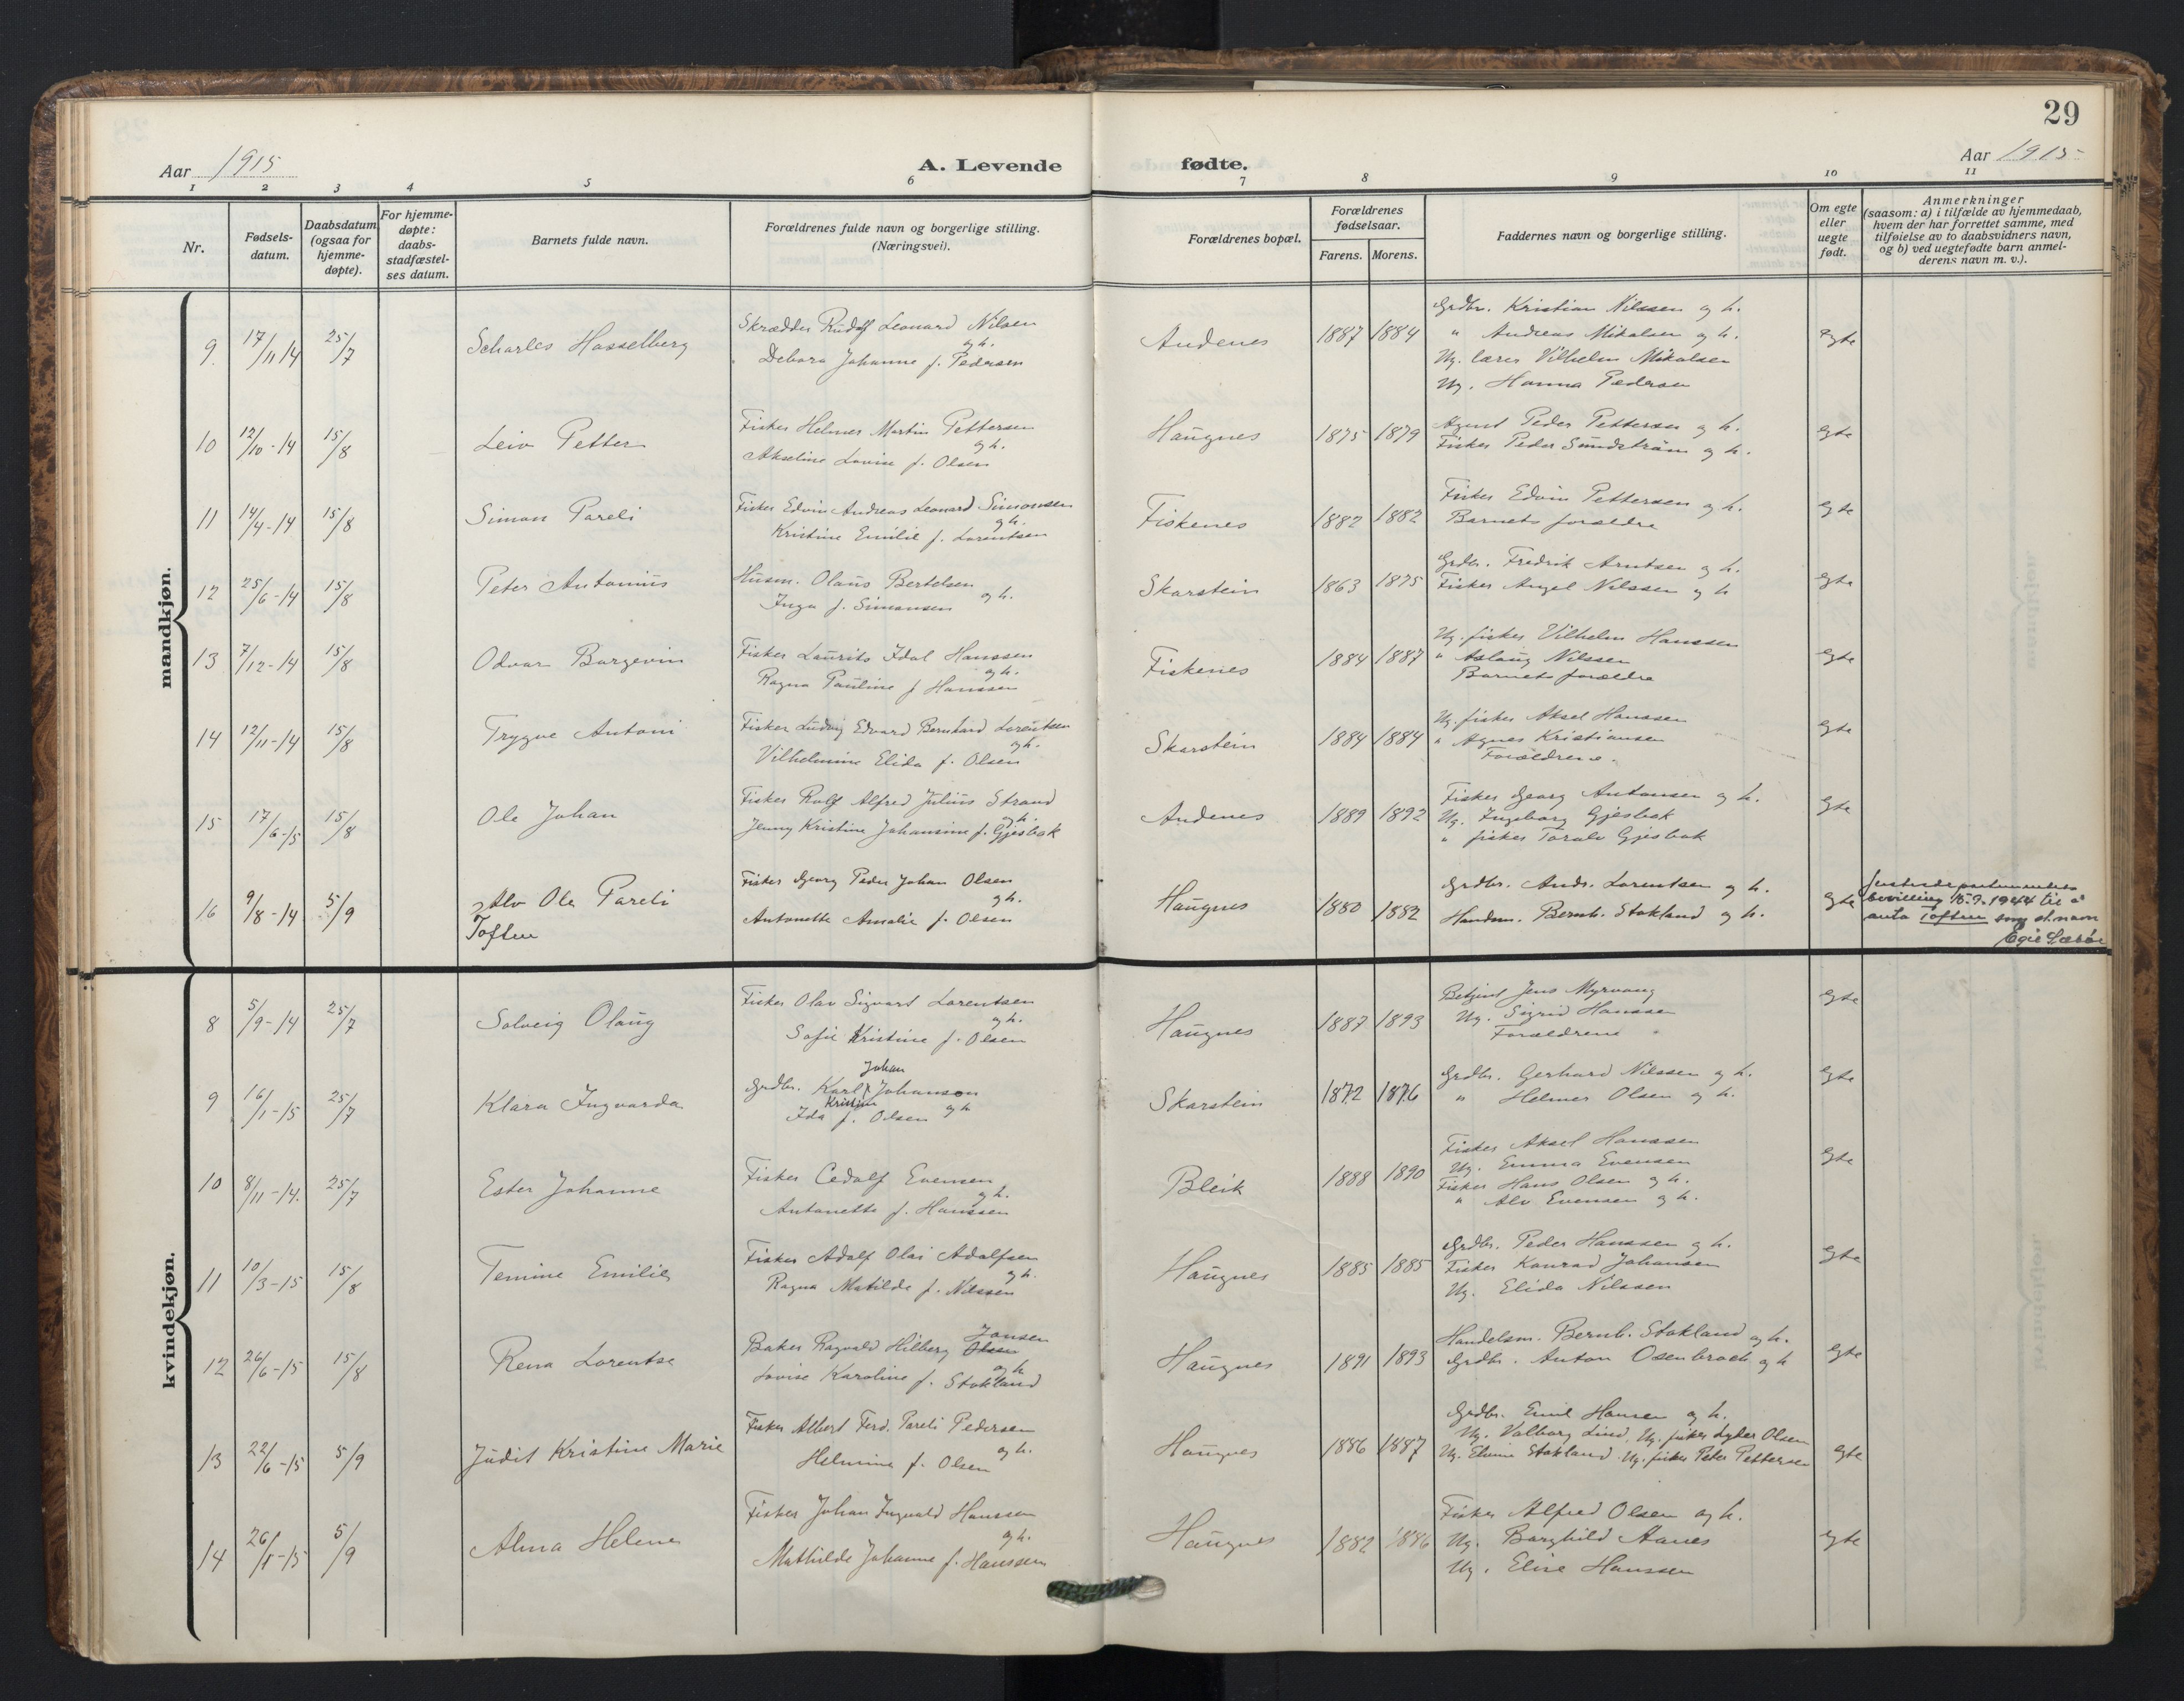 29
Aar 1915
A. Levende
fødte.
Aar 1915
1 2 3 4 5 6 7 8 9 10 11
Nr.
Fødsels-
datum.
Daabsdatum
(ogsaa for
hjemme-
døpte).
For hjemme-
døpte:
daabs-
stadfæstel-
ses datum.
Barnets fulde navn.
Forældrenes fulde navn og borgerlige stilling.
(Næringsvei).
Forældrenes bopæl.
Forældrenes
fødselsaar.
Farens. Morens.
Faddernes navn og borgerlige stilling.
Om egte
eller
uegte
født.
Anmerkninger
(saasom: a) i tilfælde av hjemmedaab,
hvem der har forrettet samme, med
tilføielse av to daabsvidners navn,
og b) ved uegtefødte barn anmel-
derens navn m. v.).
mandkjøn.
9. 17/11 14 25/7 Scharles Hasselberg
Skrædder Rudolf Leonard Nilsen
og h.
Debora Johanne f. Pedersen
Andenes 1887 1884
Grdbr. Kristian Nilssen og h.
" Andreas Mikalsen og h.
Ug. lærer Vilhelm Mikalsen
Ug. Hanna Pedersen
egte
10 12/10-14 15/8 Leiv Petter
Fisker Helmer Martin Pettersen
og h.
Akseline Lovise f. Olsen
Haugnes 1875 1879
Agent Peder Pettersen og h.
Fisker Peder Sundström og h.
egte
11 14/4-14 15/8 Simon Pareli
Fisker Edvin Andreas Leonard Simonsen
og h.
Kristine Emilie f. Lorentsen
Fiskenes 1882 1882
Fisker Edvin Pettersen og h.
Barnets forældre
egte
12 25/6-14 15/8 Peter Antonius
Husm. Olaus Bertelsen
og h.
Inga f. Simonsen
Skarstein 1863 1875
Grdbr. Fredrik Arntsen og h.
Fisker Angel Nilssen og h
egte
13 7/12-14 15/8 Odvar Borgevin
Fisker Laurits Idal Hanssen
og h.
Ragna Pauline f Hanssen
Fiskenes 1884 1887
Ug. fisker Vilhelm Hanssen
" Aslaug Nilssen
Barnets forældre
egte
14 12/11-14 15/8 Trygve Antoni
Fisker Ludvig Edvard Bernhard Lorentsen
og h.
Vilhelmine Elida f. Olsen
Skarstein 1884 1884
Ug. fisker Aksel Hanssen
" Agnes Kristiansen
Forældrene.
egte
15 17/6-15 15/8 Ole Johan
Fisker Rolf Alfred Julius Strand
og h.
Jenny Kristine Johansine f. Gjesbak
Andenes 1889 1892
Fisker Georg Antonsen og h.
Ug. Ingeborg Gjesbak
" fisker Toralv Gjesbak
egte
16 9/8-14 5/9 Alv Ole Pareli
Toften
Fisker Georg Peder Johan Olsen
og h.
Antonette Amalie f. Olsen
Haugnes 1880 1882
Grdbr. Andr. Lorentsen og h.
Handesm. Bernh. Stokland og h.
egte
Justisdepartementets
bevilling 15.7.1944 til å
anta Toften som sl.navn
kvindekjøn.
8 5/9-14 25/7 Solveig Olaug
Fisker Olav Sigvart Lorentsen
og h.
Sofie Kristine f. Olsen
Haugnes 1887 1893
Betjent Jens Myrvang
Ug. Sigrid Hanssen
Forældrene
egte
9 16/1-15 25/7 Klara Ingvarda
Johan
Grdbr. Karl Johanson
Kristine
Ida f. Olsen og h
Skarstein 1872 1876
Grdbr. Gerhard Nilssen og h.
" Helmer Olsen og h.
egte
10 8/11-14. 25/7 Ester Johanne
Fisker Cedolf Evensen
og h.
Antonette f. Hanssen
Bleik 1888 1890
Fisker Aksel Hanssen
Ug. Emma Evensen
Fisker Hans Olsen og h.
" Alv Evensen og h.
egte
11 10/3-15 15/8 Temine Emilie
Fisker Adolf Olai Adolfsen
og h.
Ragna Matilde f. Nilssen
Haugnes 1885 1885
Grdbr. Peder Hanssen og h.
Fisker Konrad Johansen
Ug. Elida Nilssen
egte
12 26/6-15 15/8 Rena Lorentse
Jansen
Baker Ragvald Hilberg Olsen
og h
Lovise Karoline f. Stokland
Haugnes 1891 1893
Handelsm. Bernh. Stokland og h.
Grdbr. Anton Osenbroch og h
egte
13 22/6-15 5/9 Judit Kristine Marie
Fisker Albert Ferd. Pareli Pedersen
og h.
Helmine f. Olsen
Haugnes 1886 1887
Grdbr. Emil Hansen og h.
Ug. Valborg Lind, Ug. fisker Lyder Olsen
Ug. Elvine Stokland. Ug. fisker Peter Pettersen
egte
14 26/1-15 5/9 Alma Helene
Fisker Johan Ingvald Hanssen
og h.
Mathilde Johanne f. Hanssen
Haugnes 1882 1886
Fisker Alfred Olsen og h.
Ug. Borghild Aanes
Ug. Elise Hanssen
egte